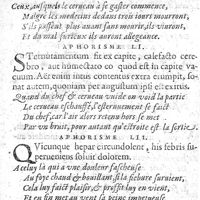 Ceux, ausquels le cerueau à se gaster commence,
Malgré les medecins dedans trois iours mourront,
S'ils passent plus auant sans mourir, ils viuront,
Et du mal furieux ils auront allegeance.
APHORISME LI.
STernutamentum fit ex capite, calefacto cere
bro, aut humectato eo quod est in capite va
cuum. Aer enim intus contentus extra erumpit, so-
nat autem, quoniam per angustum ipsi est exitus.
Quand du chef & cerueau vuide on void la partie
Le cerueau eschauffé, l'esternuement se faict
Du chef, car l'air alors retenu hors se met
Par vn bruit, pour autant qu'estroite est la sortie.
APHORISME LII.
QVicunque hepar circundolent, his febris su
perueniens soluit dolorem.
A celuy là qui a vne douleur fascheuse
Au foye chaud & bouillant, si la fieure suruient,
Cela luy faict plaisir, & profit luy en vient,
Et en fin met au vent la peine impetueuse